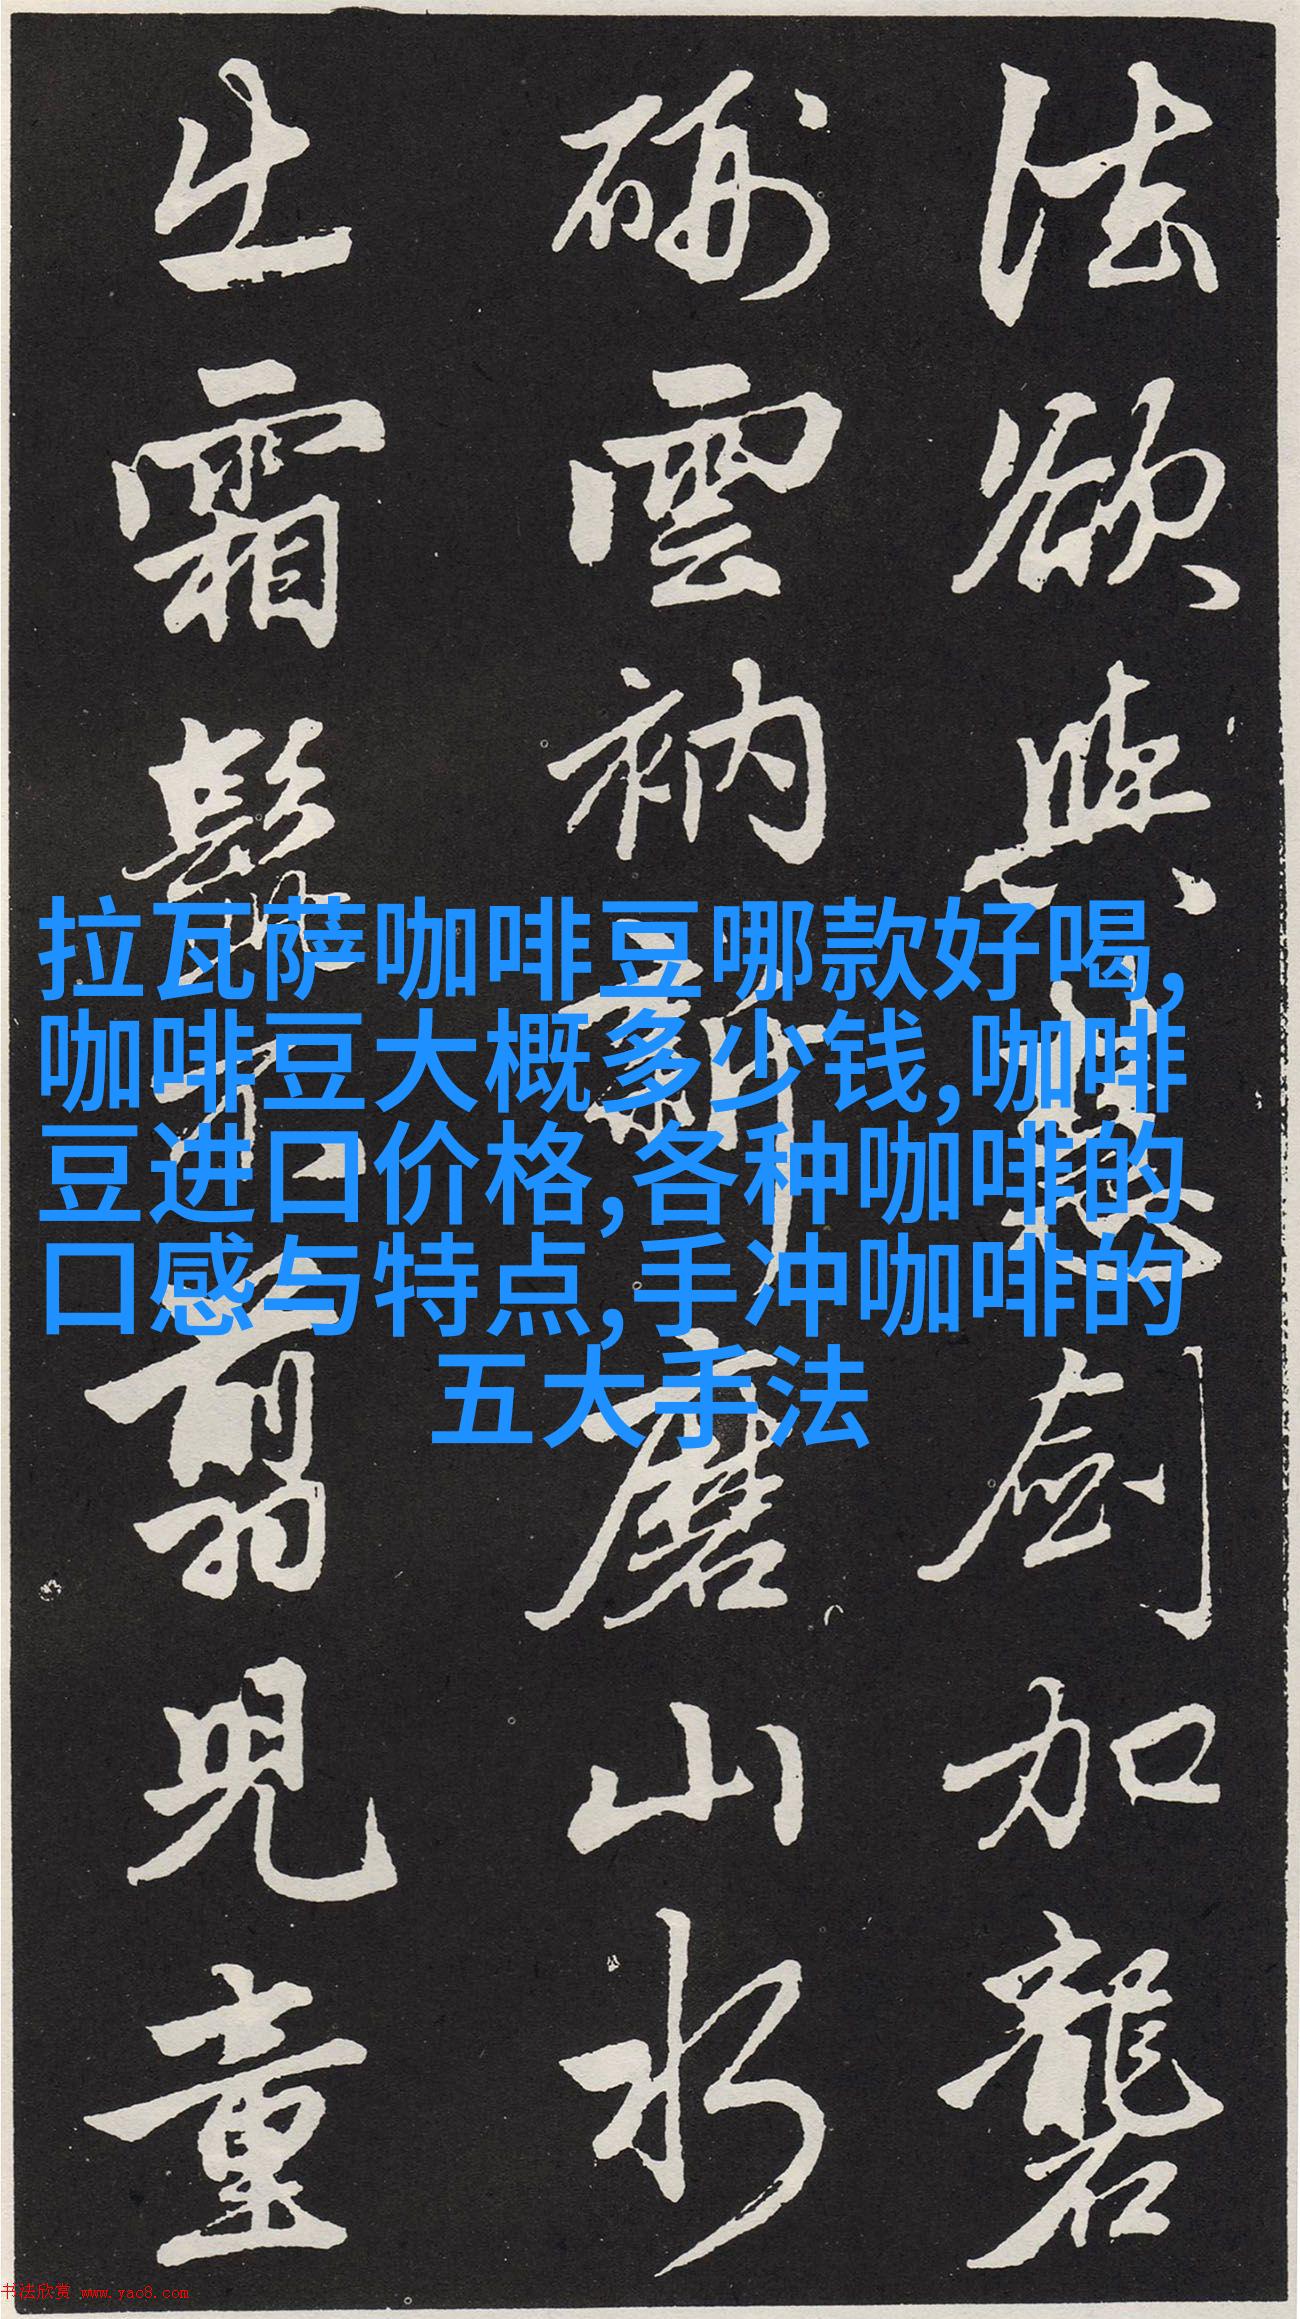 法欲與慧劍加礱
硎雲衲新磨山水
出霜髭不翦兒童
拉瓦萨咖啡豆哪款好喝,
咖啡豆大概多少钱,咖啡
豆进口价格,各种咖啡的
口感与特点,手冲咖啡的
五大手法
书法欣赏 www.yac8.com